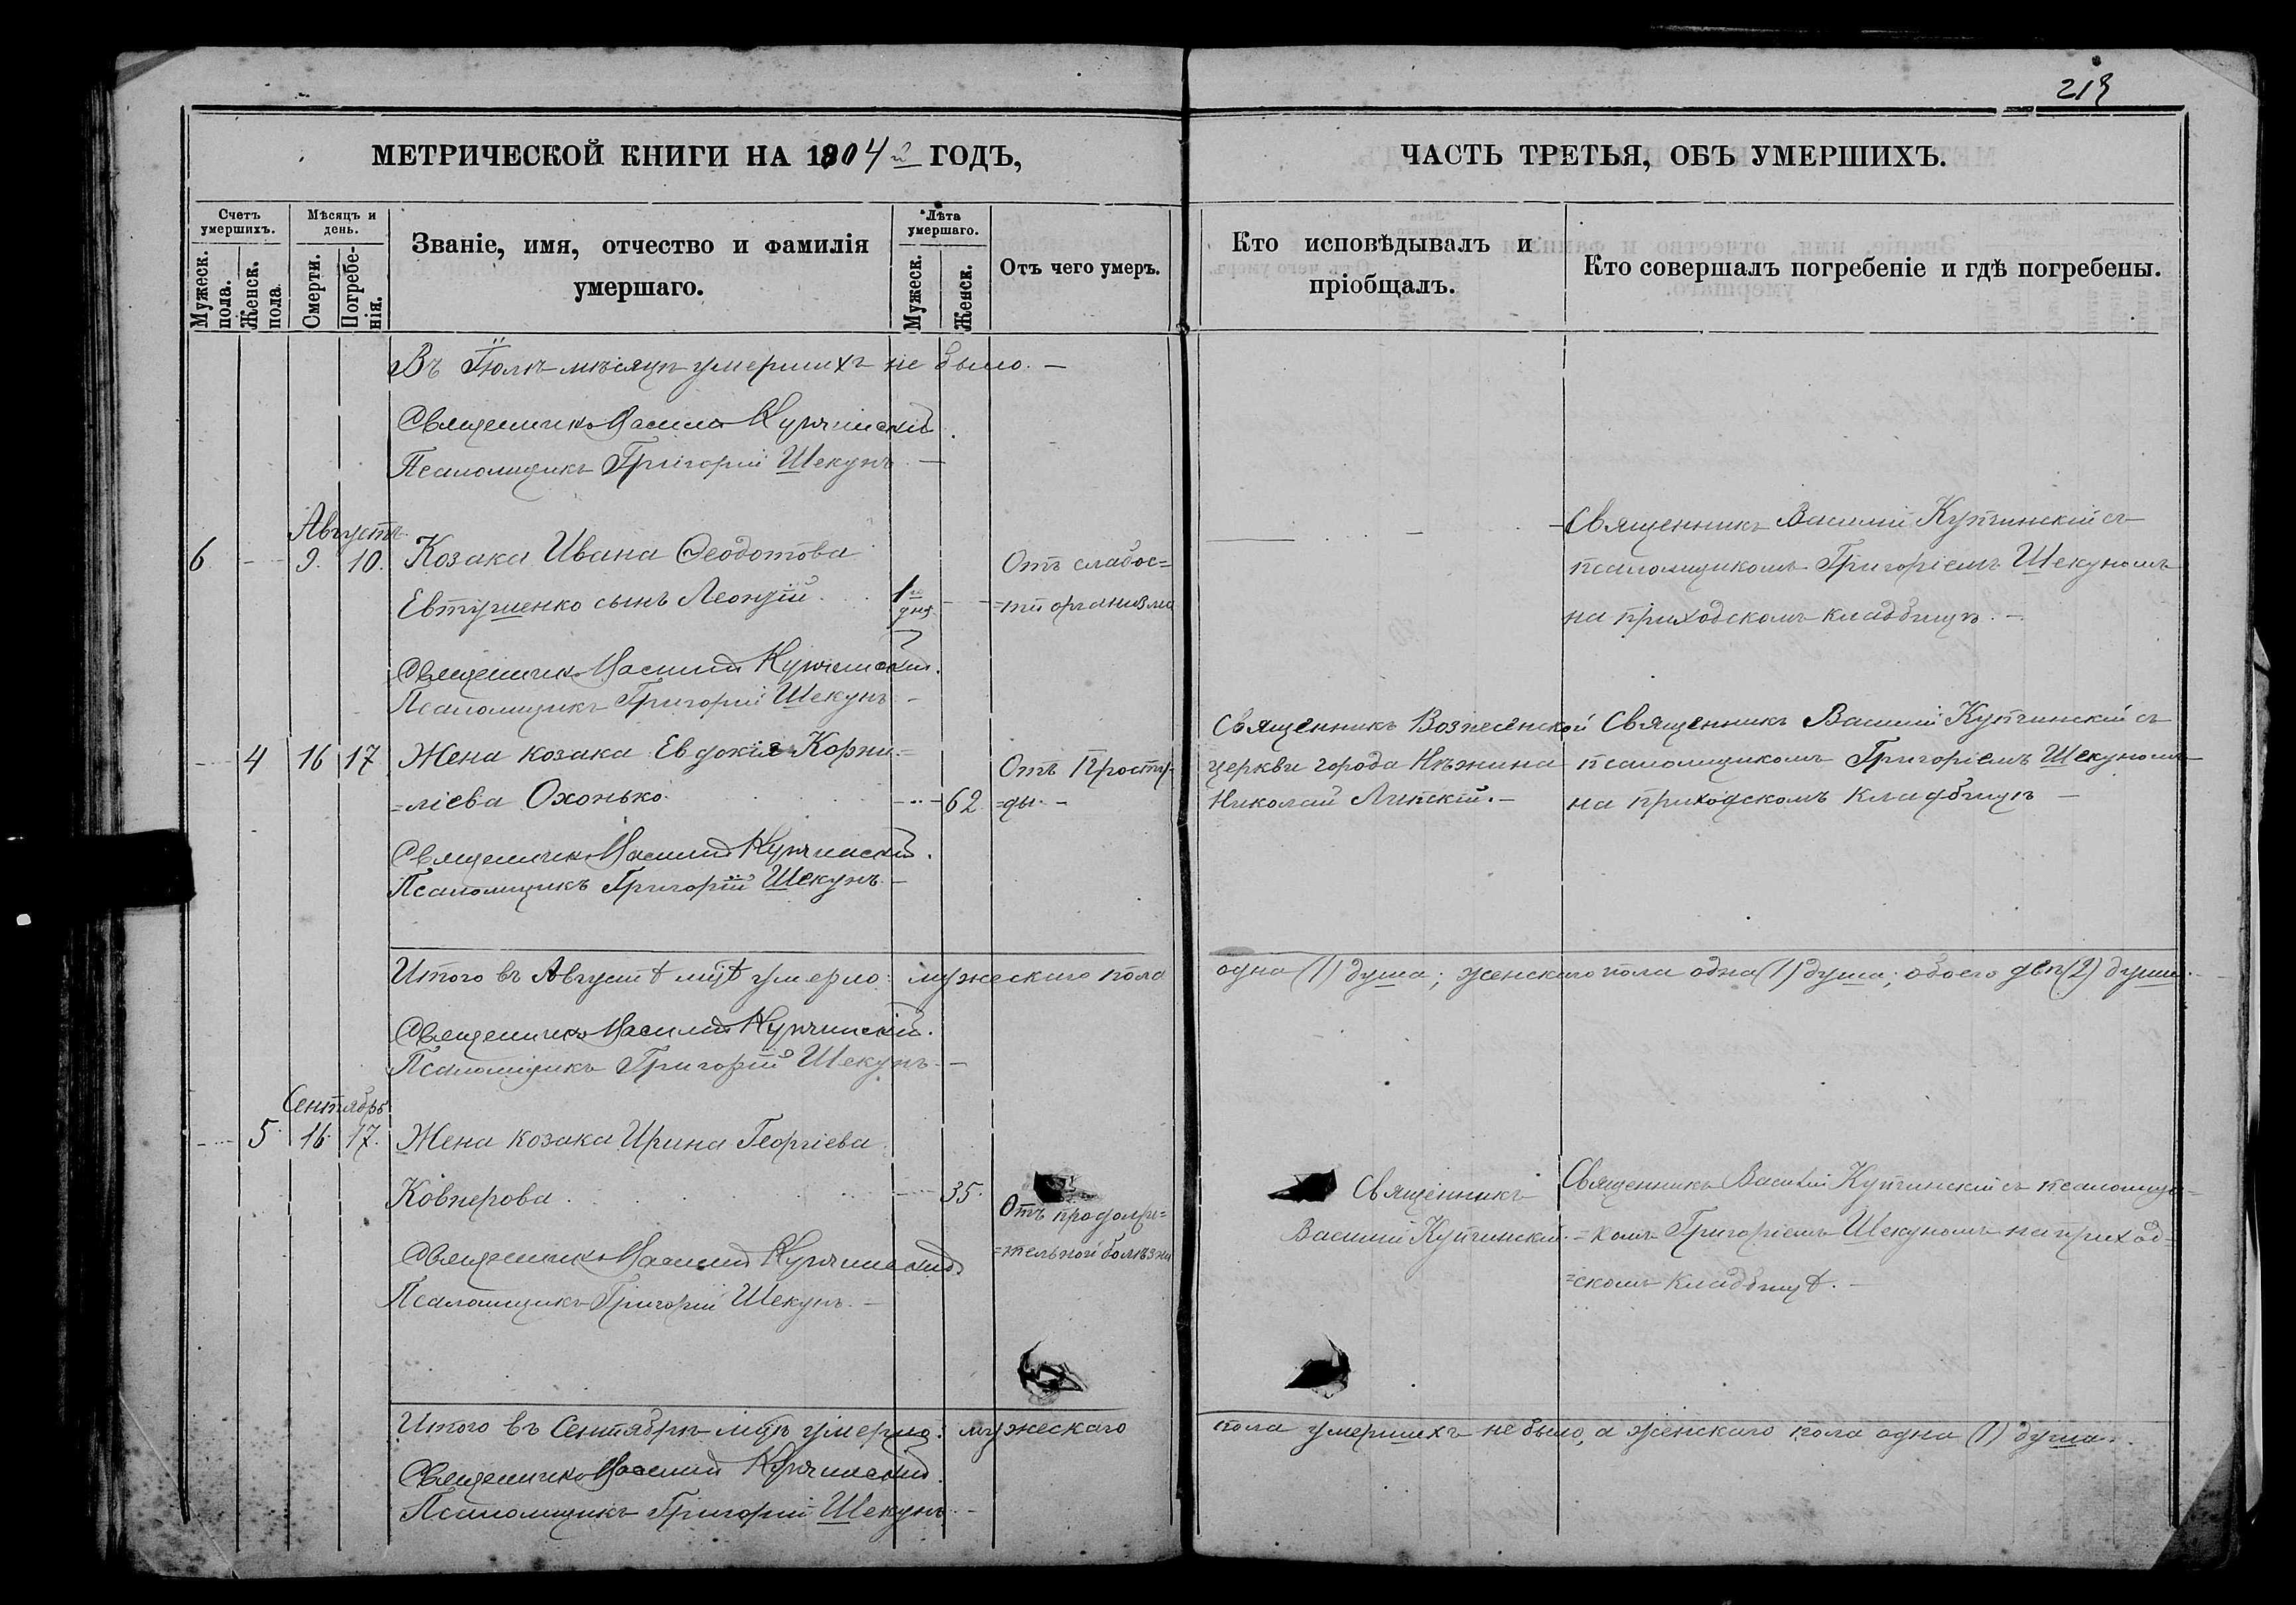 213
МЕТРИЧЕСКОЙ КНИГИ НА 1904й ГОДЪ,
ЧАСТЬ ТРЕТЬЯ, ОБЪ УМЕРШИХЪ.
Счетъ умершихъ.
Мужеск. пола.
Женск. пола.
Мѣсяцъ и день.
Смерти.
Погребе-
нія.
Званіе, имя, отчество и фамилія
умершаго.
Лѣта умершаго.
Мужеск.
Женск.
Отъ чего умеръ.
Кто исповѣдывалъ и
пріобщалъ.
Кто совершалъ погребеніе и гдѣ погребены.
Въ Іюлѣ мѣсяцѣ умершихъ не было. —
Священникъ Василій Купчинскій.
Псаломщикъ Григорій Шекунъ. —
Августъ
6 — 9. 10. Козака Ивана Ѳеодотова
Евтушенко сынъ Леонтій. 1го дня
Отъ слабос=
=ти организма
Священникъ Василій Купчинскій съ
псаломщикомъ Григоріемъ Шекуномъ
на приходскомъ кладбищѣ. —
Священникъ Василій Купчинскій.
Псаломщикъ Григорій Шекунъ. —
4 16 17 Жена козака Евдокія Корни=
=ліева Охонько. 62
Отъ просту-
=ды. —
Священникъ Вознесенской
церкви города Нѣжина
Николай Липскій. —
Священникъ Василій Купчинскій съ
псаломщикомъ Григоріемъ Шекуномъ
на приходскомъ кладбищѣ —
Священникъ Василій Купчинскій.
Псаломщикъ Григорій Шекунъ. —
Итого въ Августѣ м‑цѣ умерло: мужескаго пола одна (1) душа; женскаго пола одна (1) душа; обоего двѣ (2) души. —
Священникъ Василій Купчинскій.
Псаломщикъ Григорій Шекунъ. —
Сентябрь
5 16. 17. Жена козака Ирина Георгіева
Ковперова. 35.
Отъ продолжи=
=тельной болѣзни
Священникъ
Василій Купчинскій.
Священникъ Василій Купчинскій съ псаломщи=
=комъ Григоріемъ Шекуномъ на приход=
=скомъ кладбищѣ. —
Священникъ Василій Купчинскій
Псаломщикъ Григорій Шекунъ. —
Итого въ Сентябрѣ м‑цѣ умерло: мужескаго пола умершихъ не было, а женскаго пола одна (1) душа.
Священникъ Василій Купчинскій.
Псаломщикъ Григорій Шекунъ. —